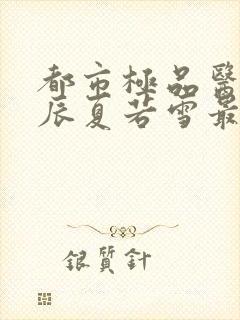 都市極品醫
辰夏若雪最
銀質針